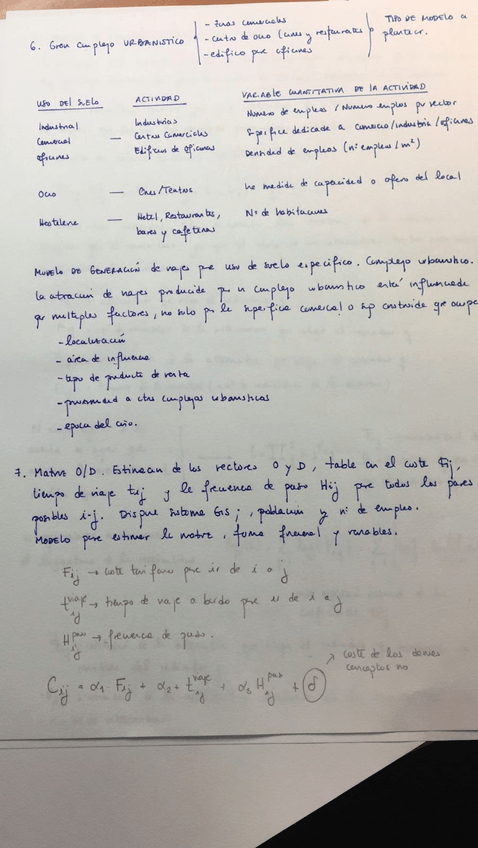 6. Gran complejo URBANISTICO
- Zonas comerciales
- centro de ocio (cines y restaurantes)
- edificio para oficinas
TIPO DE MODELO a plantear.
USO DEL SUELO ACTIVIDAD VARIABLE CUANTITATIVA DE LA ACTIVIDAD
Industrial Industrias Número de empleos / Número empleos por sector
Comercial — Centros Comerciales Superficie dedicada a comercio/industria/oficinas
Oficinas Edificios de oficinas Densidad de empleos (nº empleos/m²)
Ocio — Cines/Teatros La medida de capacidad o aforo del local
Hostelería — Hotel, Restaurantes, Nº de habitaciones
bares y cafeterías
MODELO DE GENERACIÓN de viajes para uso de suelo específico. Complejo urbanístico.
La atracción de viajes producida por un complejo urbanístico está influenciada
por multiples factores, no solo por la superficie comercial o sup construida que ocupe
- localización
- área de influencia
- tipo de producto de venta
- proximidad a otros complejos urbanísticos
- época del año.
7. Matriz O/D. Estiman de los vectores O y D, tabla con el coste Fij,
tiempo de viaje tij y la frecuencia de paso Hij para todos los pares
posibles i-j. Dispone sistema GIS, población y nº de empleo.
MODELO para estimar la matriz, forma funcional y variables.
Fij → coste tarifario para ir de i a j
t ij viaje → tiempo de viaje a bordo para ir de i a j
H ij paso → frecuencia de paso.
→ coste de los demás
conceptos no
Cij = α1 Fij + α2 + t ij viaje + α3 H ij paso + δ